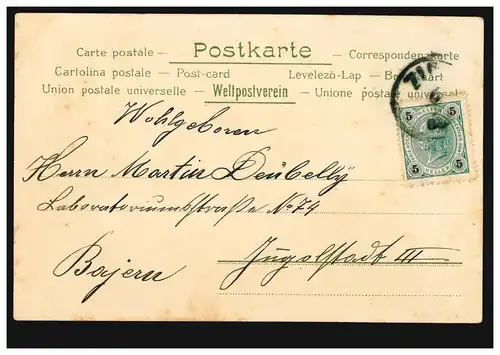 Carte postale — Postkarte — Correspondenzkarte
Cartolina postale — Post-card Levelező-Lap — Br
Union postale universelle — Weltpostverein — Unione postale universale
Wohlgeboren
Herrn Martin Deubelly
Laboratoriumsstraße No 74
Bayern
Ingolstadt III
5 5
5 5
HELLER